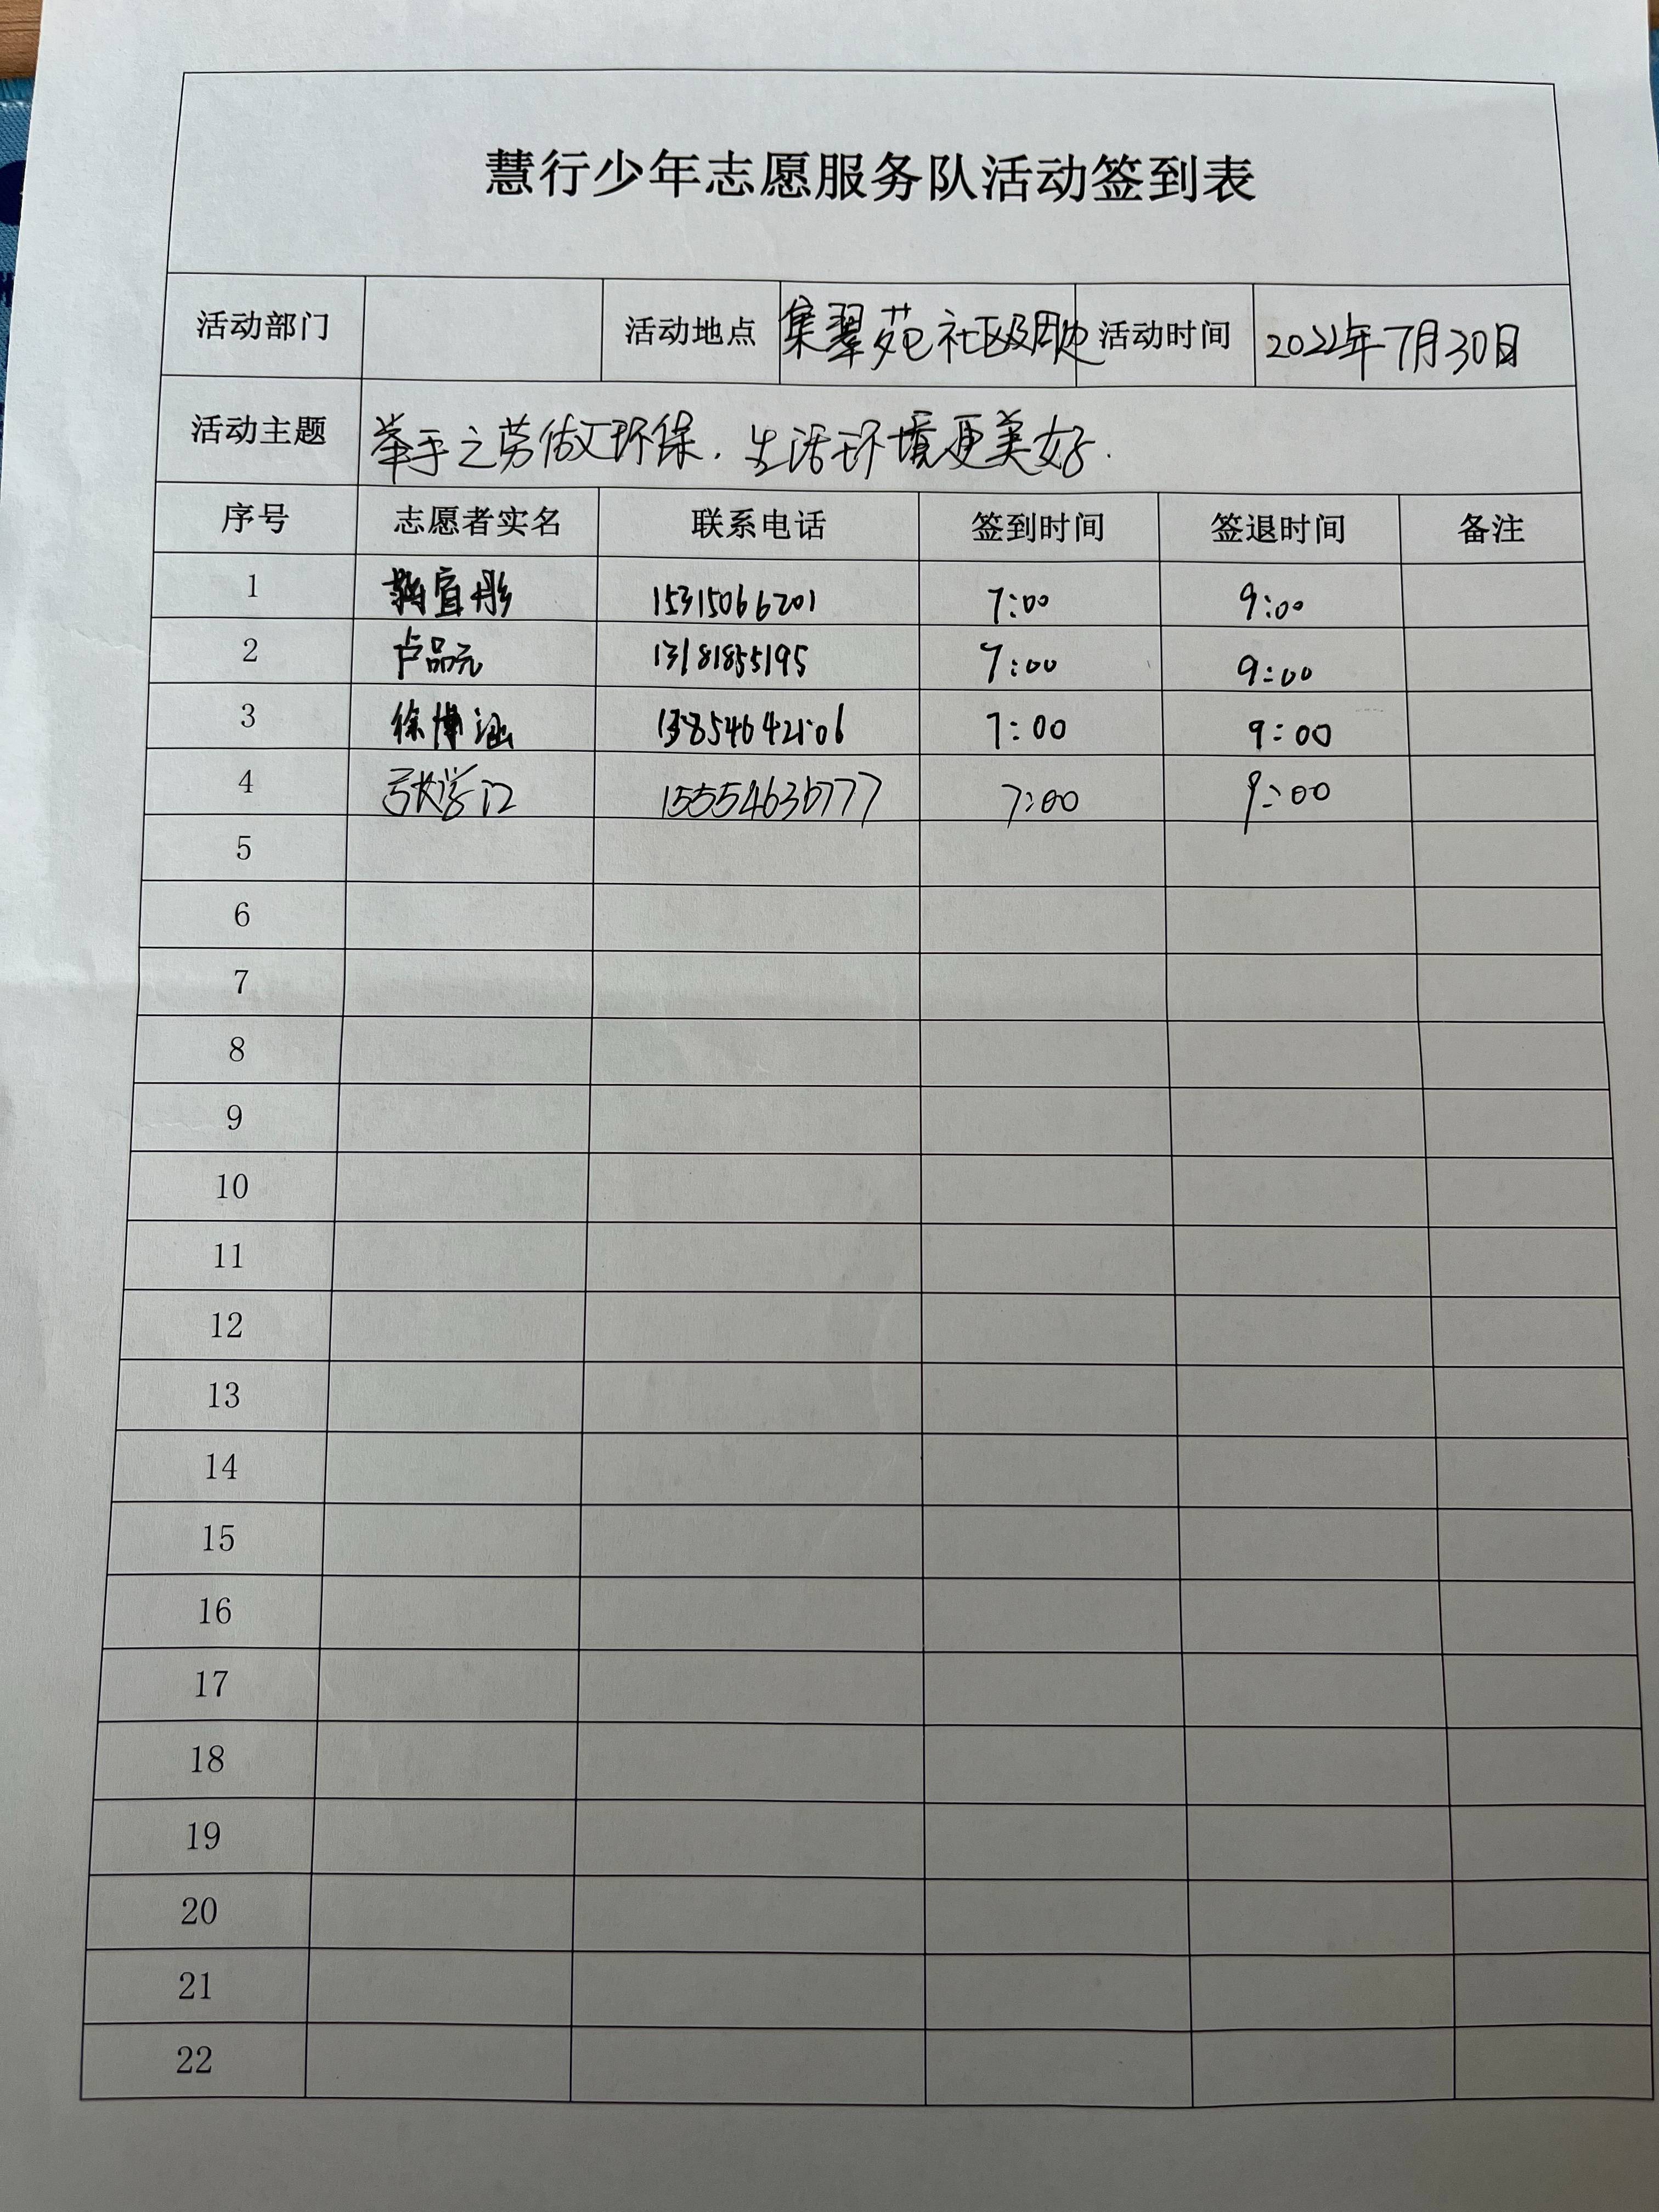 慧行少年志愿服务队活动签到表
活动部门 活动地点 集翠苑社区及周边 活动时间 2022年7月30日
活动主题 举手之劳做环保，生活环境更美好.
序号 志愿者实名 联系电话 签到时间 签退时间 备注
1 宣彤 15315066201 7:00 9:00
2 卢品元 13181855195 7:00 9:00
3 徐博涵 13854642106 7:00 9:00
4 张学江 15554636777 7:00 9:00
5
6
7
8
9
10
11
12
13
14
15
16
17
18
19
20
21
22